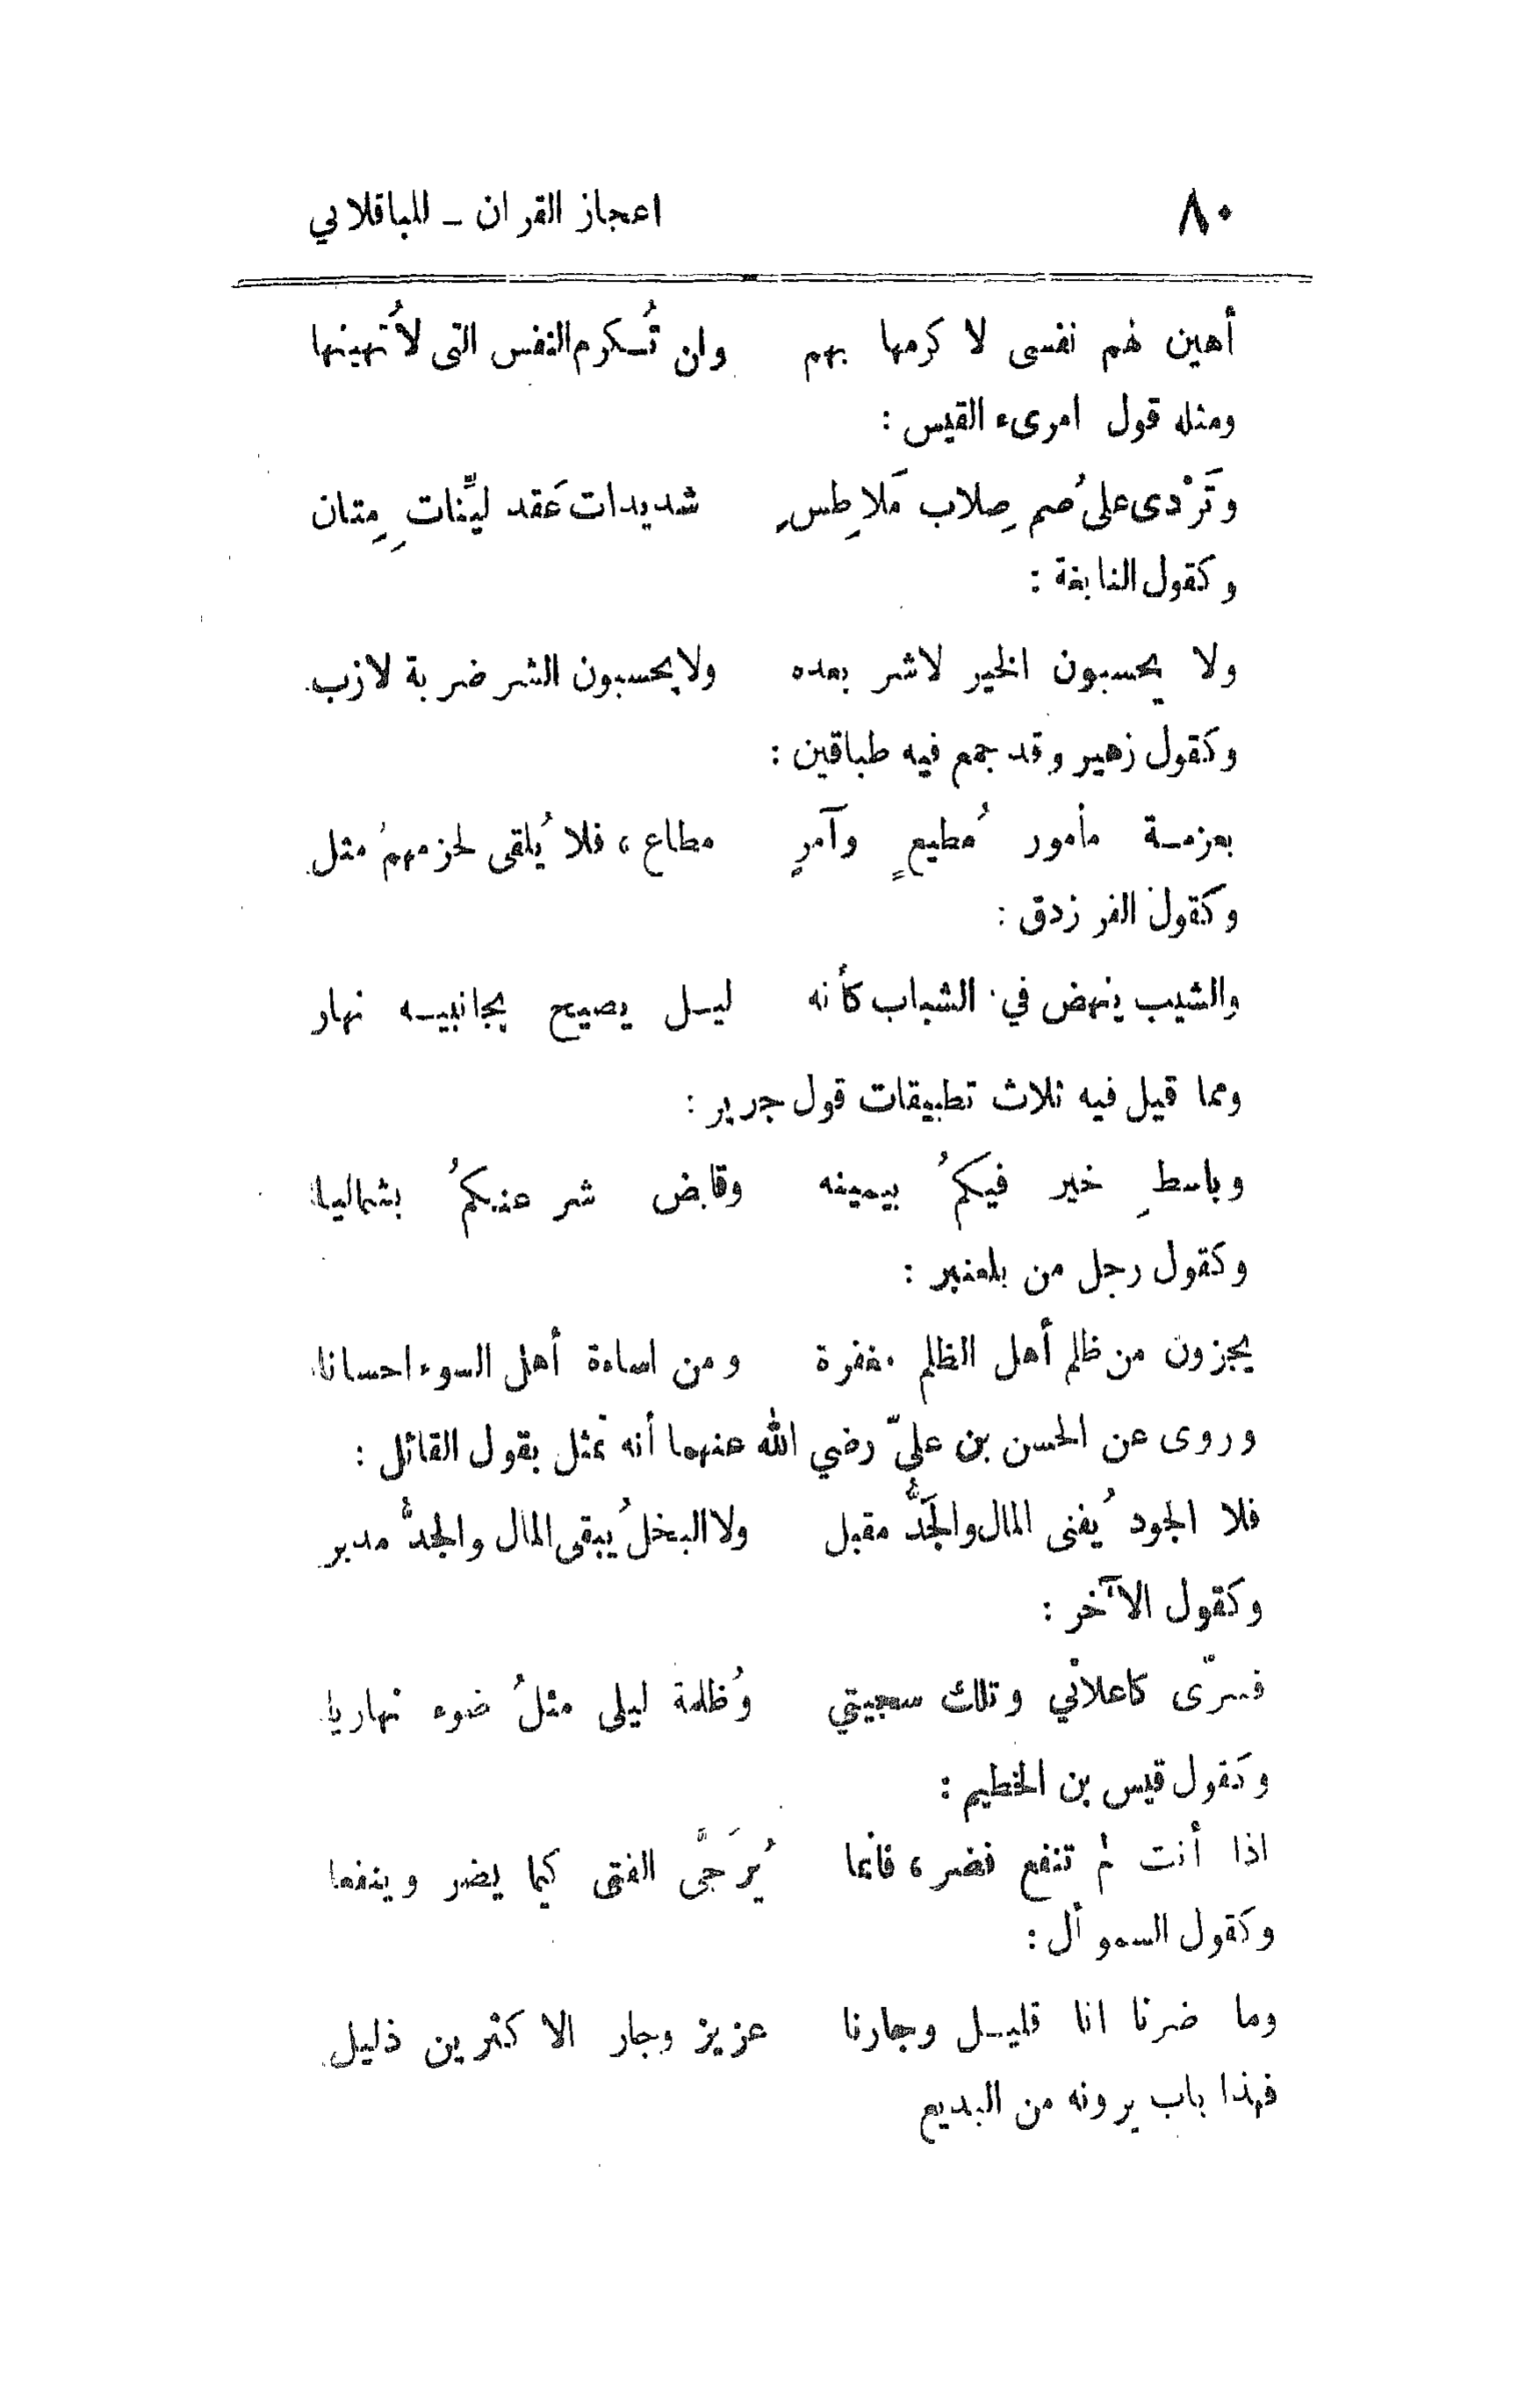 ٨٠ اعجاز القرآن - للباقلاني
أهين لهم نفسى لا كرمها بهم وان تُكرم النفس التى لا تُهينها
ومثله قول امرىء القيس :
وتَرْدى على صُم صِلاب مَلاطِسٍ شديدات عَقد ليِّنات مِتان
وكقول النابغة :
ولا يحسبون الخير لاشر بعده ولا يحسبون الشر ضربة لازب
وكقول زهير وقد جمع فيه طباقين :
بعزمة مأمور مُطيعٍ وآمرٍ مطاع ، فلا يُلقى لحزمهمُ مثل
وكقول الفرزدق :
والشيب ينهض في الشباب كأنه ليل يصيح بجانبيه نهار
ومما قيل فيه ثلاث تطبيقات قول جرير :
وباسطِ خير فيكمُ بيمينه وقابض شر عنكمُ بشماليا
وكقول رجل من بلعنبر :
يجزون من ظلم أهل الظلم مغفرة ومن اساءة أهل السوء احسانا
وروى عن الحسن بن عليّ رضي الله عنهما أنه تمثل بقول القائل :
فلا الجود يُفنى المال والجَدُّ مقبل ولا البخلُ يبقى المال والجدُّ مدبر
وكقول الآخر :
فسرّى كاعلاني وتلك سجيتي وظُلمة ليلى مثلُ ضوء نهاريا
وكقول قيس بن الخطيم :
اذا أنت لم تنفع فضر ، فانما يُرَجَّى الفتى كيما يضر وينفعا
وكقول السموأل :
وما ضرنا انا قليل وجارنا عزيز وجار الاكثرين ذليل
فهذا باب يرونه من البديع